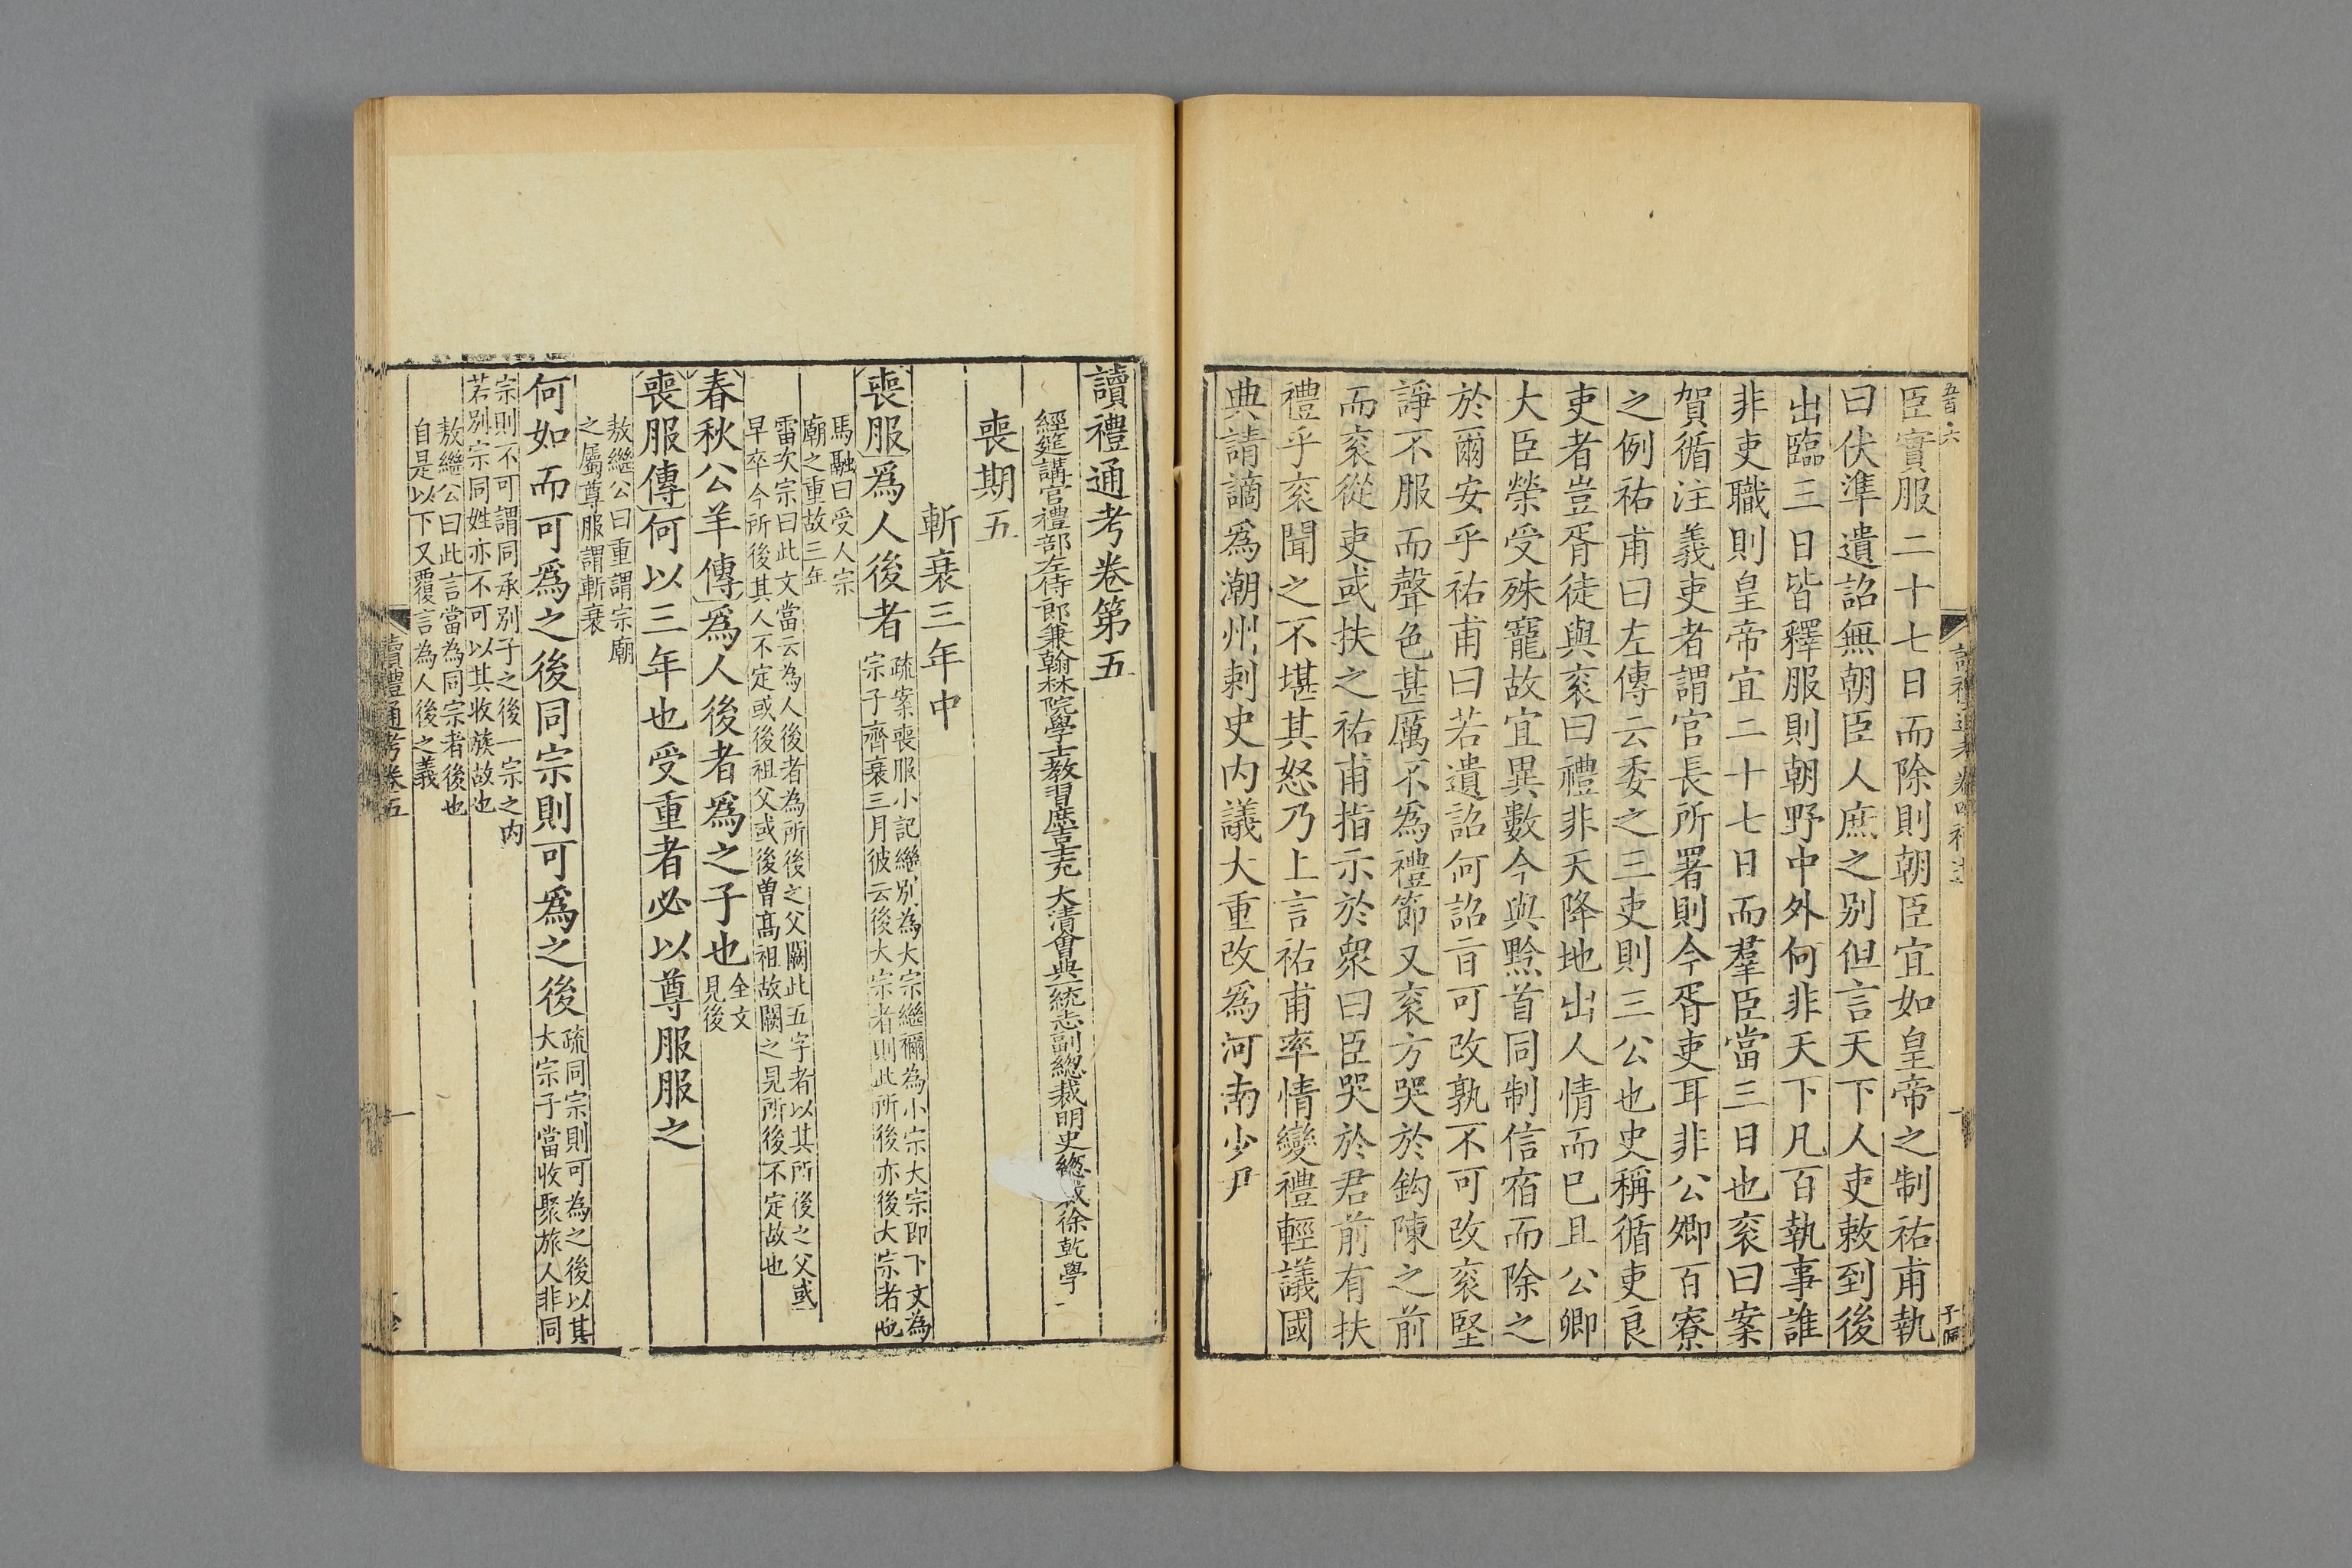 五百六
臣實服二十七日而除則朝臣宜如皇帝之制祐甫執
曰伏準遺詔無朝臣人庶之别但言天下人吏敕到後
出臨三日皆釋服則朝野中外何非天下凡百執事誰
非吏職則皇帝宜二十七日而羣臣當三日也衮曰案
賀循注義吏者謂官長所署則今胥吏耳非公卿百寮
之例祐甫曰左傳云委之三吏則三公也史稱循吏良
吏者豈胥徒與衮曰禮非天降地出人情而已且公卿
大臣榮受殊寵故宜異數今與黔首同制信宿而除之
於爾安乎祐甫曰若遺詔何詔旨可改孰不可改衮堅
諍不服而聲色甚厲不為禮節又衮方哭於鉤陳之前
而衮從吏或扶之祐甫指示於衆曰臣哭於君前有扶
禮乎衮聞之不堪其怒乃上言祐甫率情變禮輕議國
典請謫爲潮州刺史内議大重改爲河南少尹
讀禮通考卷第五
經筵講官禮部左侍郎兼翰林院學士教習庶吉士充大清會典一統志副總裁明史總裁徐乾學
喪期五
斬衰三年中
喪服爲人後者
疏案喪服小記繼别為大宗繼禰為小宗大宗即下文為
宗子齊衰三月彼云後大宗者則此所後亦後大宗者也
馬融曰受人宗
廟之重故三年
雷次宗曰此文當云為人後者為所後之父闕此五字者以其所後之父或
早卒今所後其人不定或後祖父或後曽髙祖故闕之見所後不定故也
春秋公羊傳爲人後者爲之子也
全文
見後
喪服傳何以三年也受重者必以尊服服之
敖繼公曰重謂宗廟
之屬尊服謂斬衰
何如而可爲之後同宗則可爲之後
疏同宗則可為之後以其
大宗子當收聚旅人非同
宗則不可謂同承别子之後一宗之内
若别宗同姓亦不可以其收族故也
敖繼公曰此言當為同宗者後也
自是以下又覆言為人後之義
讀禮通考卷五
一